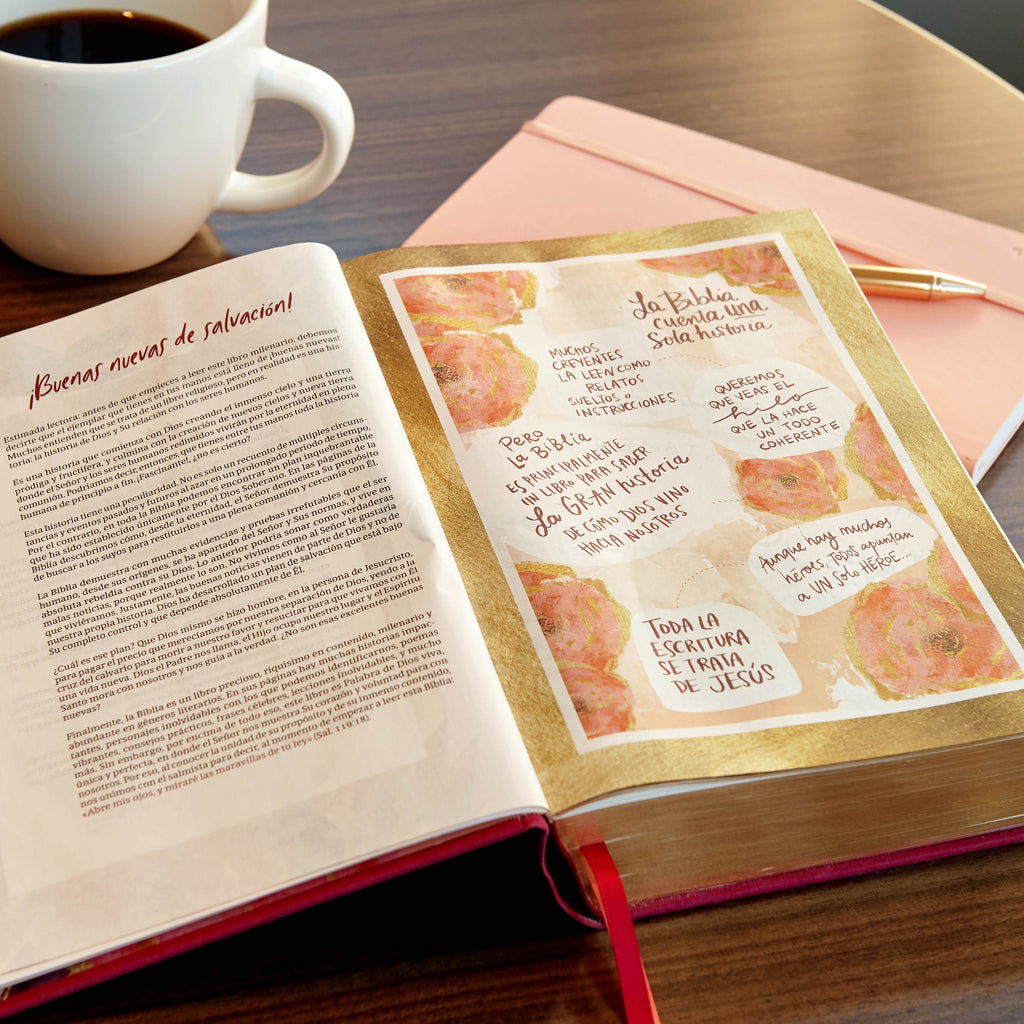 ¡Buenas nuevas de salvación!
Estimada lectora: antes de que empieces a leer este libro milenario, debemos
decirte que el ejemplar que tienes en tus manos está lleno de ¡buenas nuevas!
Muchos entienden que se trata de un libro religioso, pero en realidad es una his-
toria: la historia de Dios y Su relación con los seres humanos.
Es una historia que comienza con Dios creando el inmenso cielo y una tierra
pródiga y fructífera, y culmina con la creación de nuevos cielos y nueva tierra
donde el Señor y los seres humanos redimidos vivirán por la eternidad en plena
comunión. Podríamos decir, entonces, que tienes entre tus manos toda la historia
humana de principio a fin. ¡Fascinante!, ¿no es cierto?
Esta historia tiene una peculiaridad. No es solo un recuento de múltiples circuns-
tancias y eventos pasados y futuros al azar en un prolongado periodo de tiempo.
Por el contrario, en toda la Biblia podemos encontrar un plan inquebrantable
que ha sido establecido únicamente por el Dios Soberano. En las páginas de la
Biblia descubrimos cómo, desde la eternidad, el Señor demuestra Su propósito
de buscar a los suyos para restituirlos a una plena comunión y cercanía con Él.
La Biblia demuestra con muchas evidencias y pruebas irrefutables que el ser
humano, desde sus orígenes, se ha apartado del Señor y Sus normas, y vive en
absoluta rebeldía contra su Dios. Lo anterior podría sonar como verdaderas
malas noticias, porque realmente lo son. No vivimos como al Señor le gustaría
que viviéramos. Justamente, las buenas noticias vienen de parte de Dios y no de
nuestra propia historia. Dios ha desarrollado un plan de salvación que está bajo
Su completo control y que depende absolutamente de Él.
¿Cuál es ese plan? Que Dios mismo se hizo hombre, en la persona de Jesucristo,
para pagar el precio que merecíamos por nuestra separación de Dios, yendo a la
cruz del calvario para morir a nuestro favor y resucitar para que vivamos con Él
una vida nueva. Dios el Padre nos llama, el Hijo ocupa nuestro lugar y el Espíritu
Santo mora con nosotros y nos guía a la verdad. ¿No son esas excelentes buenas
nuevas?
Finalmente, la Biblia es un libro precioso, riquísimo en contenido, milenario y
abundante en géneros literarios. En sus páginas hay muchas historias impac-
tantes, personajes inolvidables con los que podemos identificarnos, poemas
vibrantes, consejos prácticos, frases célebres, lecciones inolvidables, y mucho
más. Sin embargo, por encima de todo eso, este libro es Palabra de Dios viva,
única y perfecta, en donde el Señor nos muestra Su corazón y voluntad para con
nosotros. Por eso, al conocer la unidad de su propósito y de su inmenso contenido,
nos unimos con el salmista para decir, al momento de empezar a leer esta Biblia:
«Abre mis ojos, y miraré las maravillas de tu ley» (Sal. 119:18).
La Biblia
cuenta una
sola historia
MUCHOS
CREYENTES
LA LEEN COMO
RELATOS
SUELTOS o
INSTRUCCIONES
QUEREMOS
QUE VEAS EL
hilo
QUE LA HACE
UN TODO
COHERENTE
PERO
LA BIBLIA
ES PRINCIPALMENTE
UN LIBRO PARA SABER
La GRAN historia
DE CÓMO DIOS VINO
HACIA NOSOTROS
Aunque hay muchos
héroes, TODOS apuntan
a UN Solo HÉROE...
TODA LA
ESCRITURA
SE TRATA
DE JESÚS